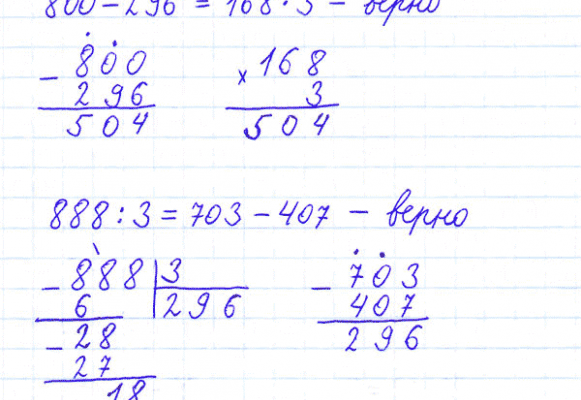 800 − 296 = 168 · 3 − верно
− 800
296
504
× 168
3
504
888 : 3 = 703 − 407 − верно
− 888 | 3
6 | 296
− 28
27
18
− 703
407
296